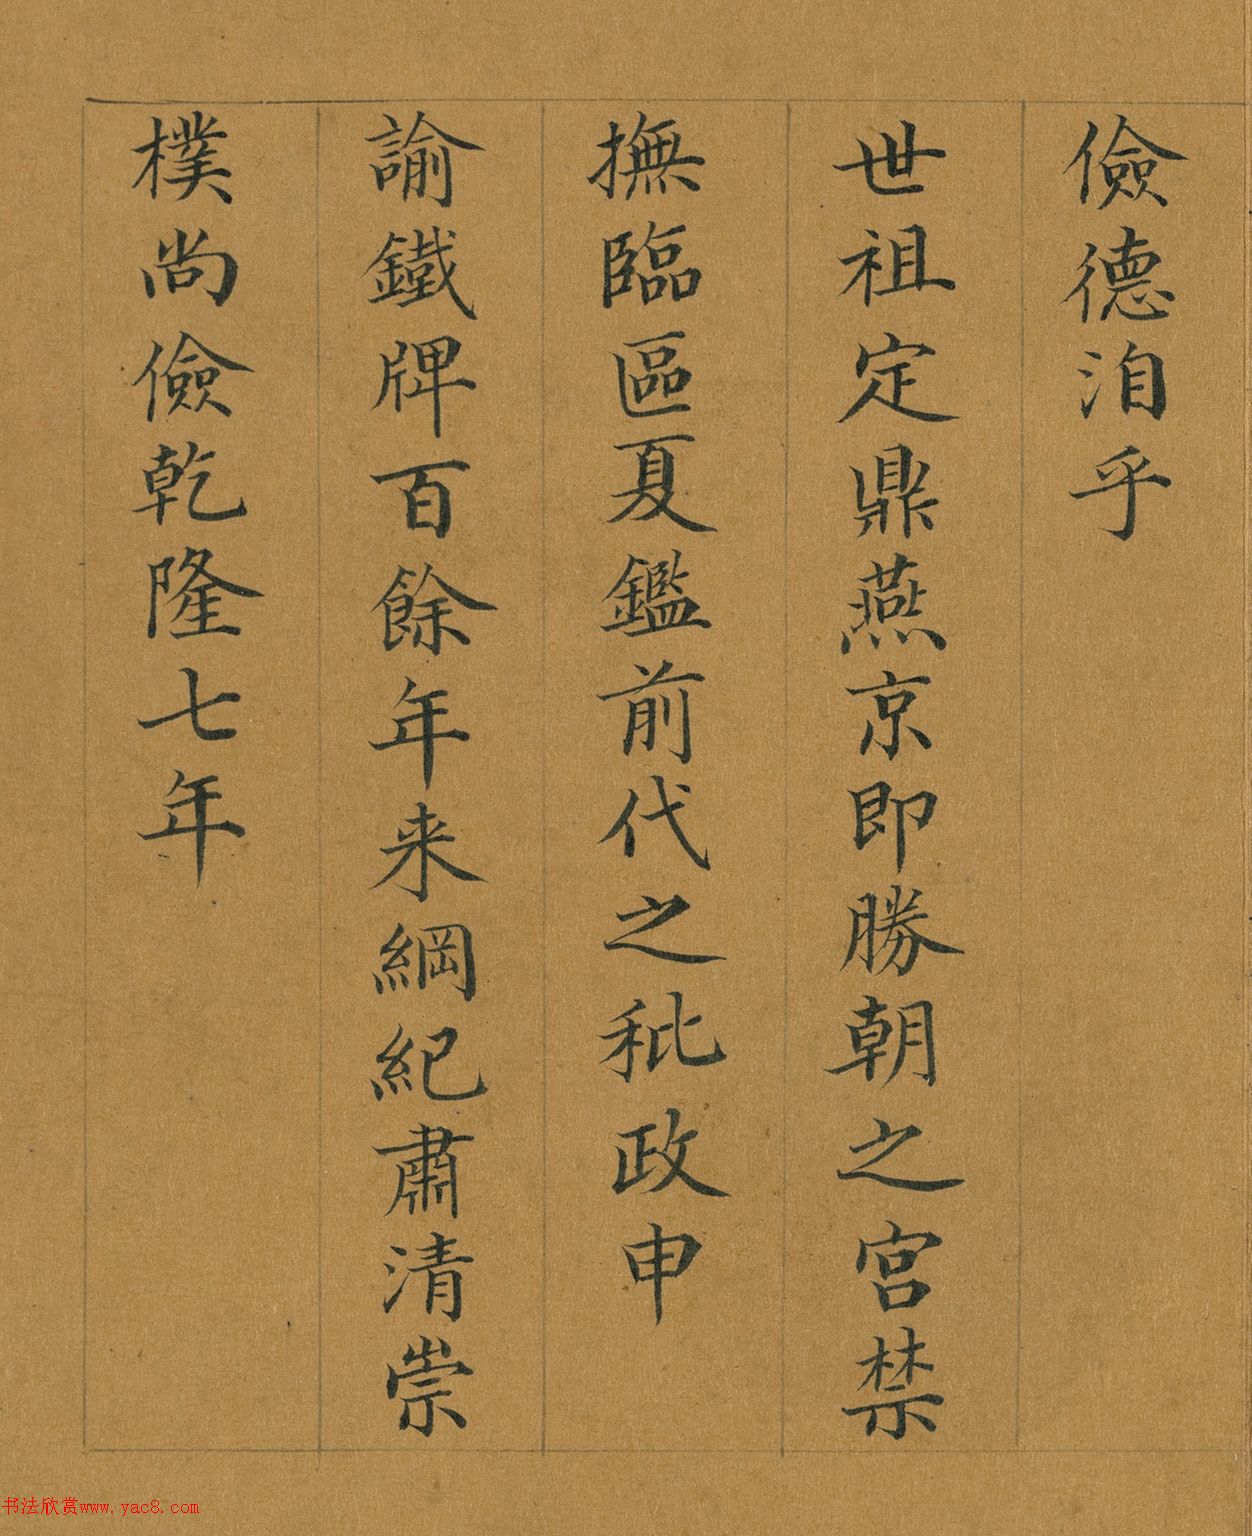 儉德洎乎
世祖定鼎燕京即勝朝之宮禁
撫臨區夏鑑前代之秕政申
諭鐵牌百餘年来綱紀肅清崇
樸尚儉乾隆七年
书法欣赏www.yac8.com